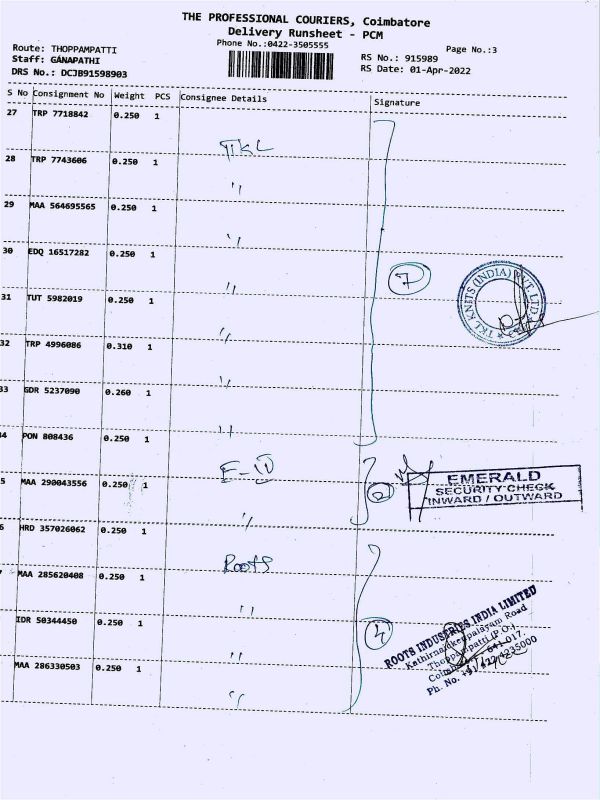 THE PROFESSIONAL COURIERS, Coimbatore
Delivery Runsheet - PCM
Phone No.:0422-3505555
Page No.:3
Route: THOPPAMPATTI
Staff: GANAPATHI
DRS No.: DCJB91598903
RS No.: 915989
RS Date: 01-Apr-2022
S No Consignment No Weight PCS Consignee Details Signature
27 TRP 7718842 0.250 1
TKL
28 TRP 7743606 0.250 1
"
29 MAA 564695565 0.250 1
"
30 EDQ 16517282 0.250 1
"
7
TKL KNITS (INDIA) PVT. LTD.
31 TUT 5982019 0.250 1
"
32 TRP 4996086 0.310 1
"
33 GDR 5237090 0.260 1
"
4 PON 808436 0.250 1
5 MAA 290043556 0.250 1
"
2
EMERALD
SECURITY CHECK
INWARD / OUTWARD
6 HRD 357026062 0.250 1
Roots
MAA 285620408 0.250 1
"
IDR 50344450 0.250 1
"
4
ROOTS INDUSTRIES INDIA LIMITED
Kathirnaickenpalayam Road
Thoppampatti (P.O.)
Coimbatore - 641 017.
Ph. No. +91 422 4235000
MAA 286330503 0.250 1
"